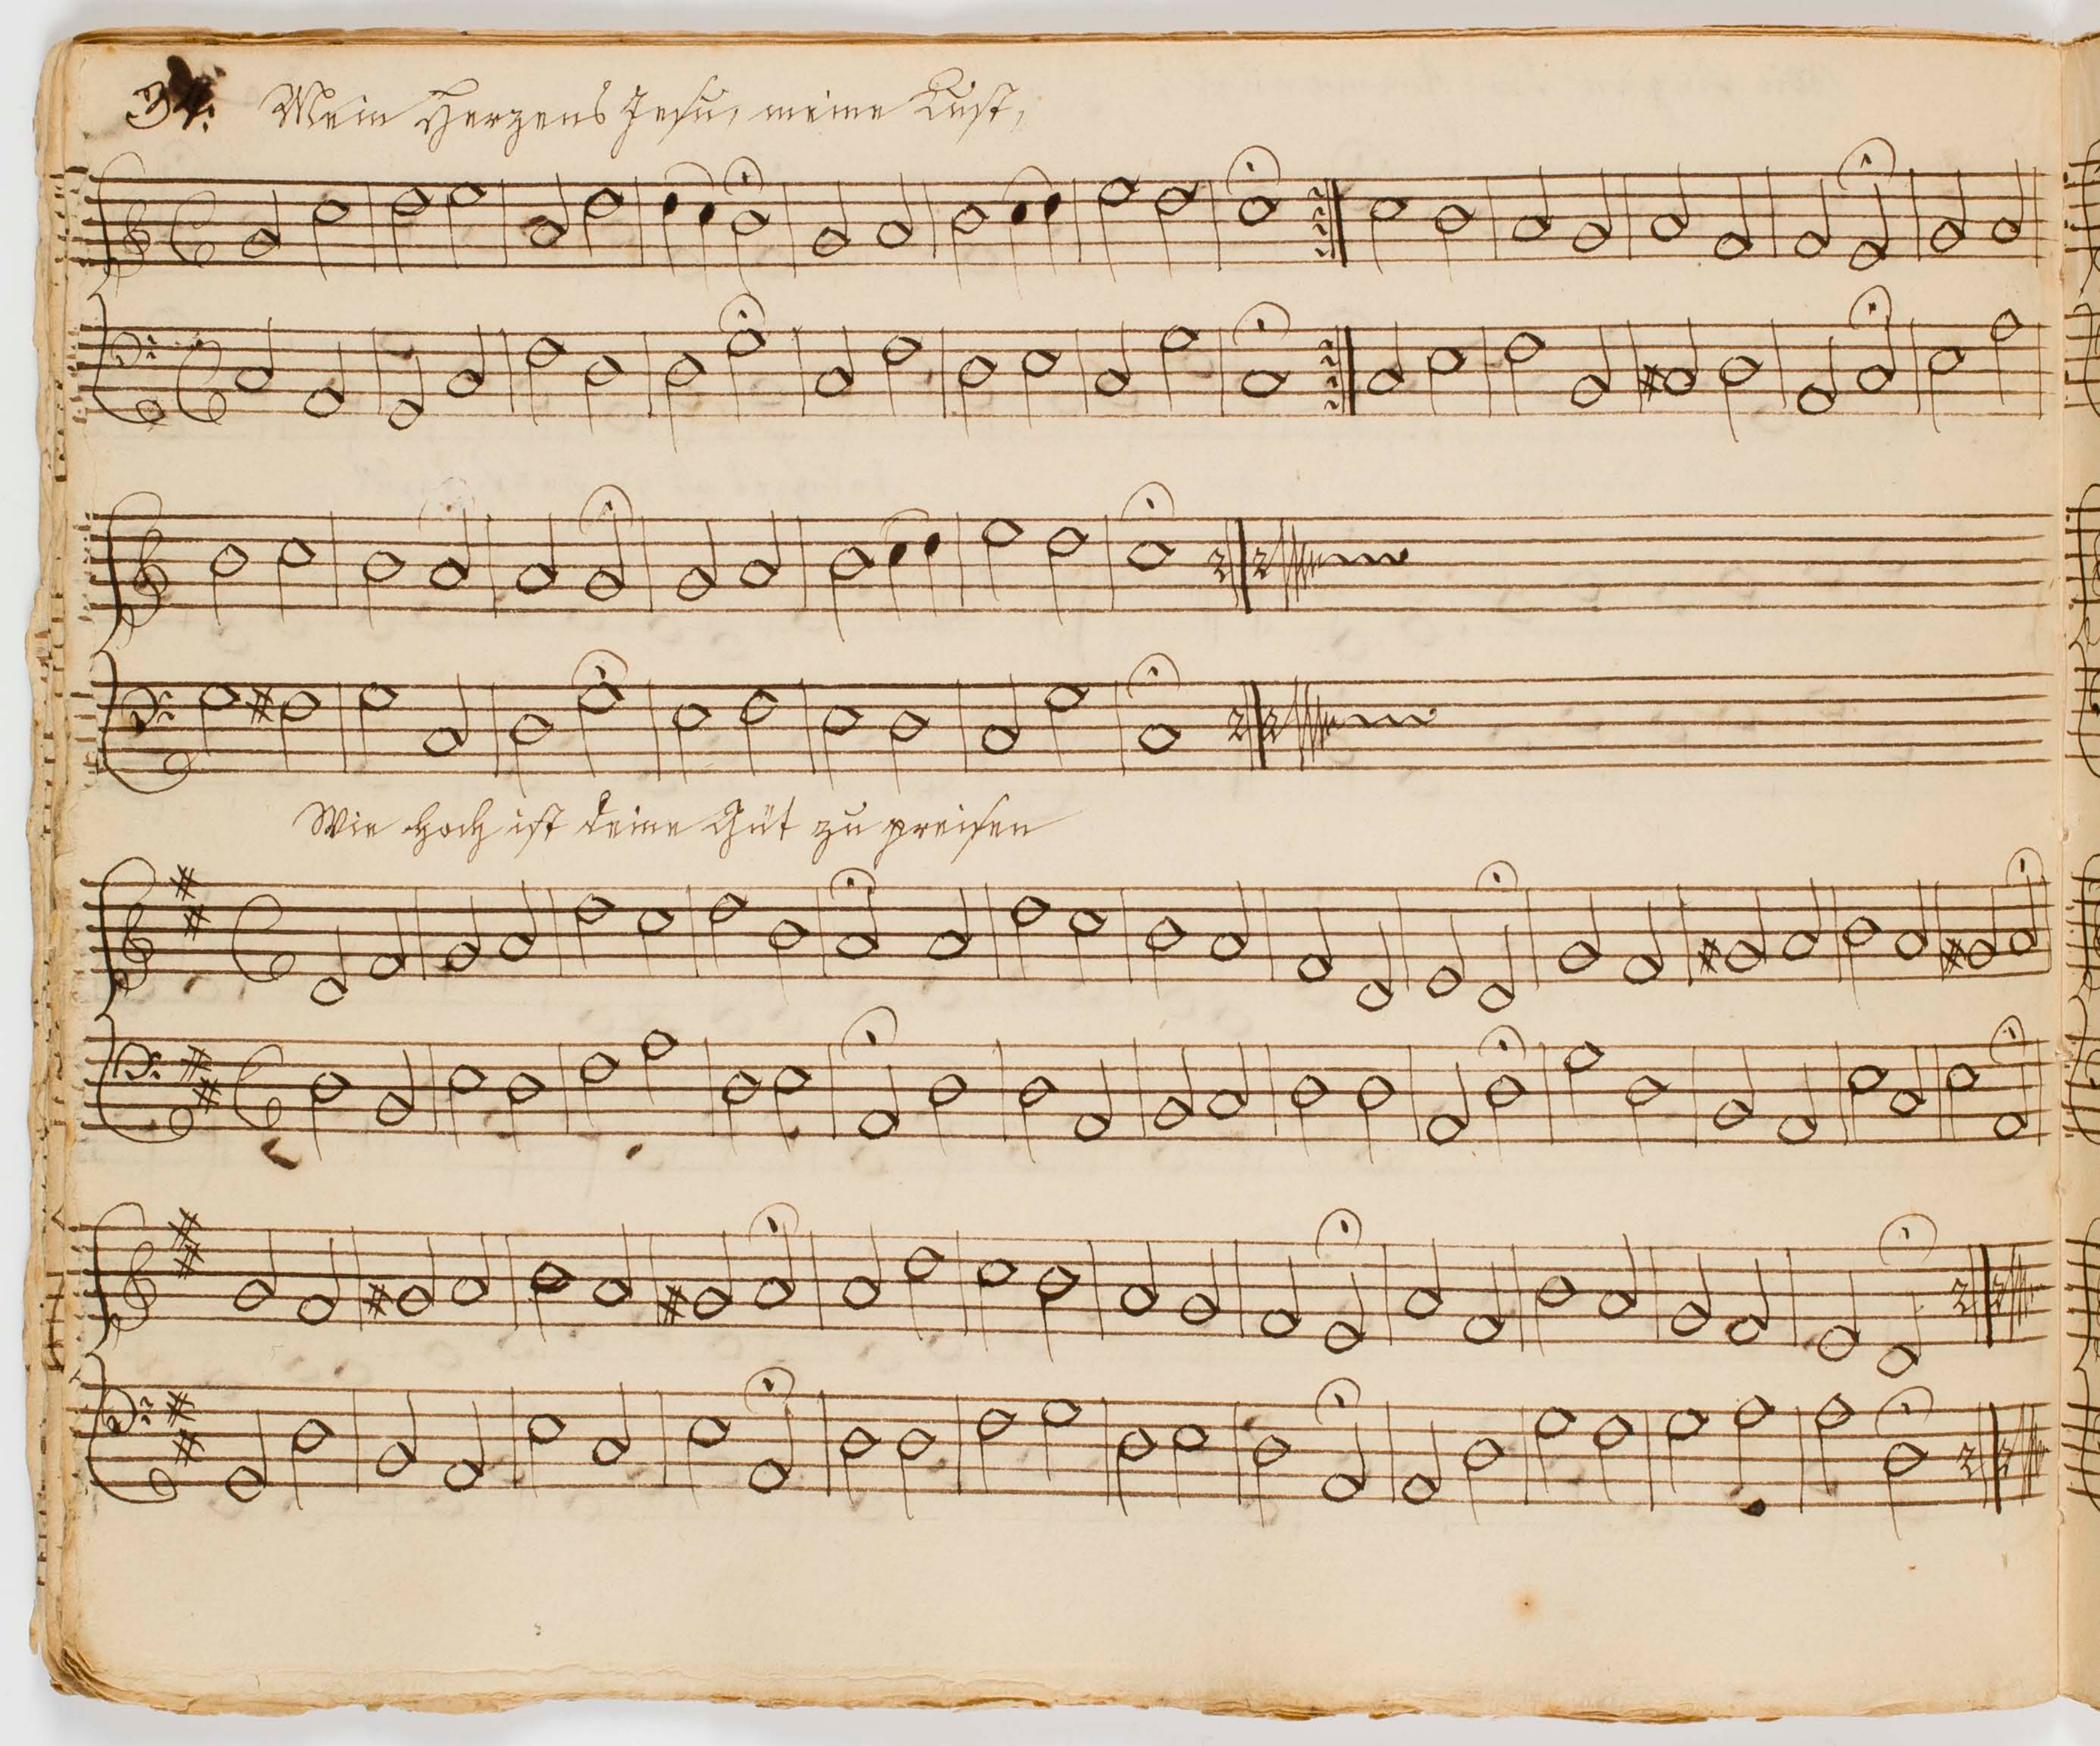 34. Mein Herzens Jesu, meine Lust,
Wie hoch ist deine Güt zu preisen